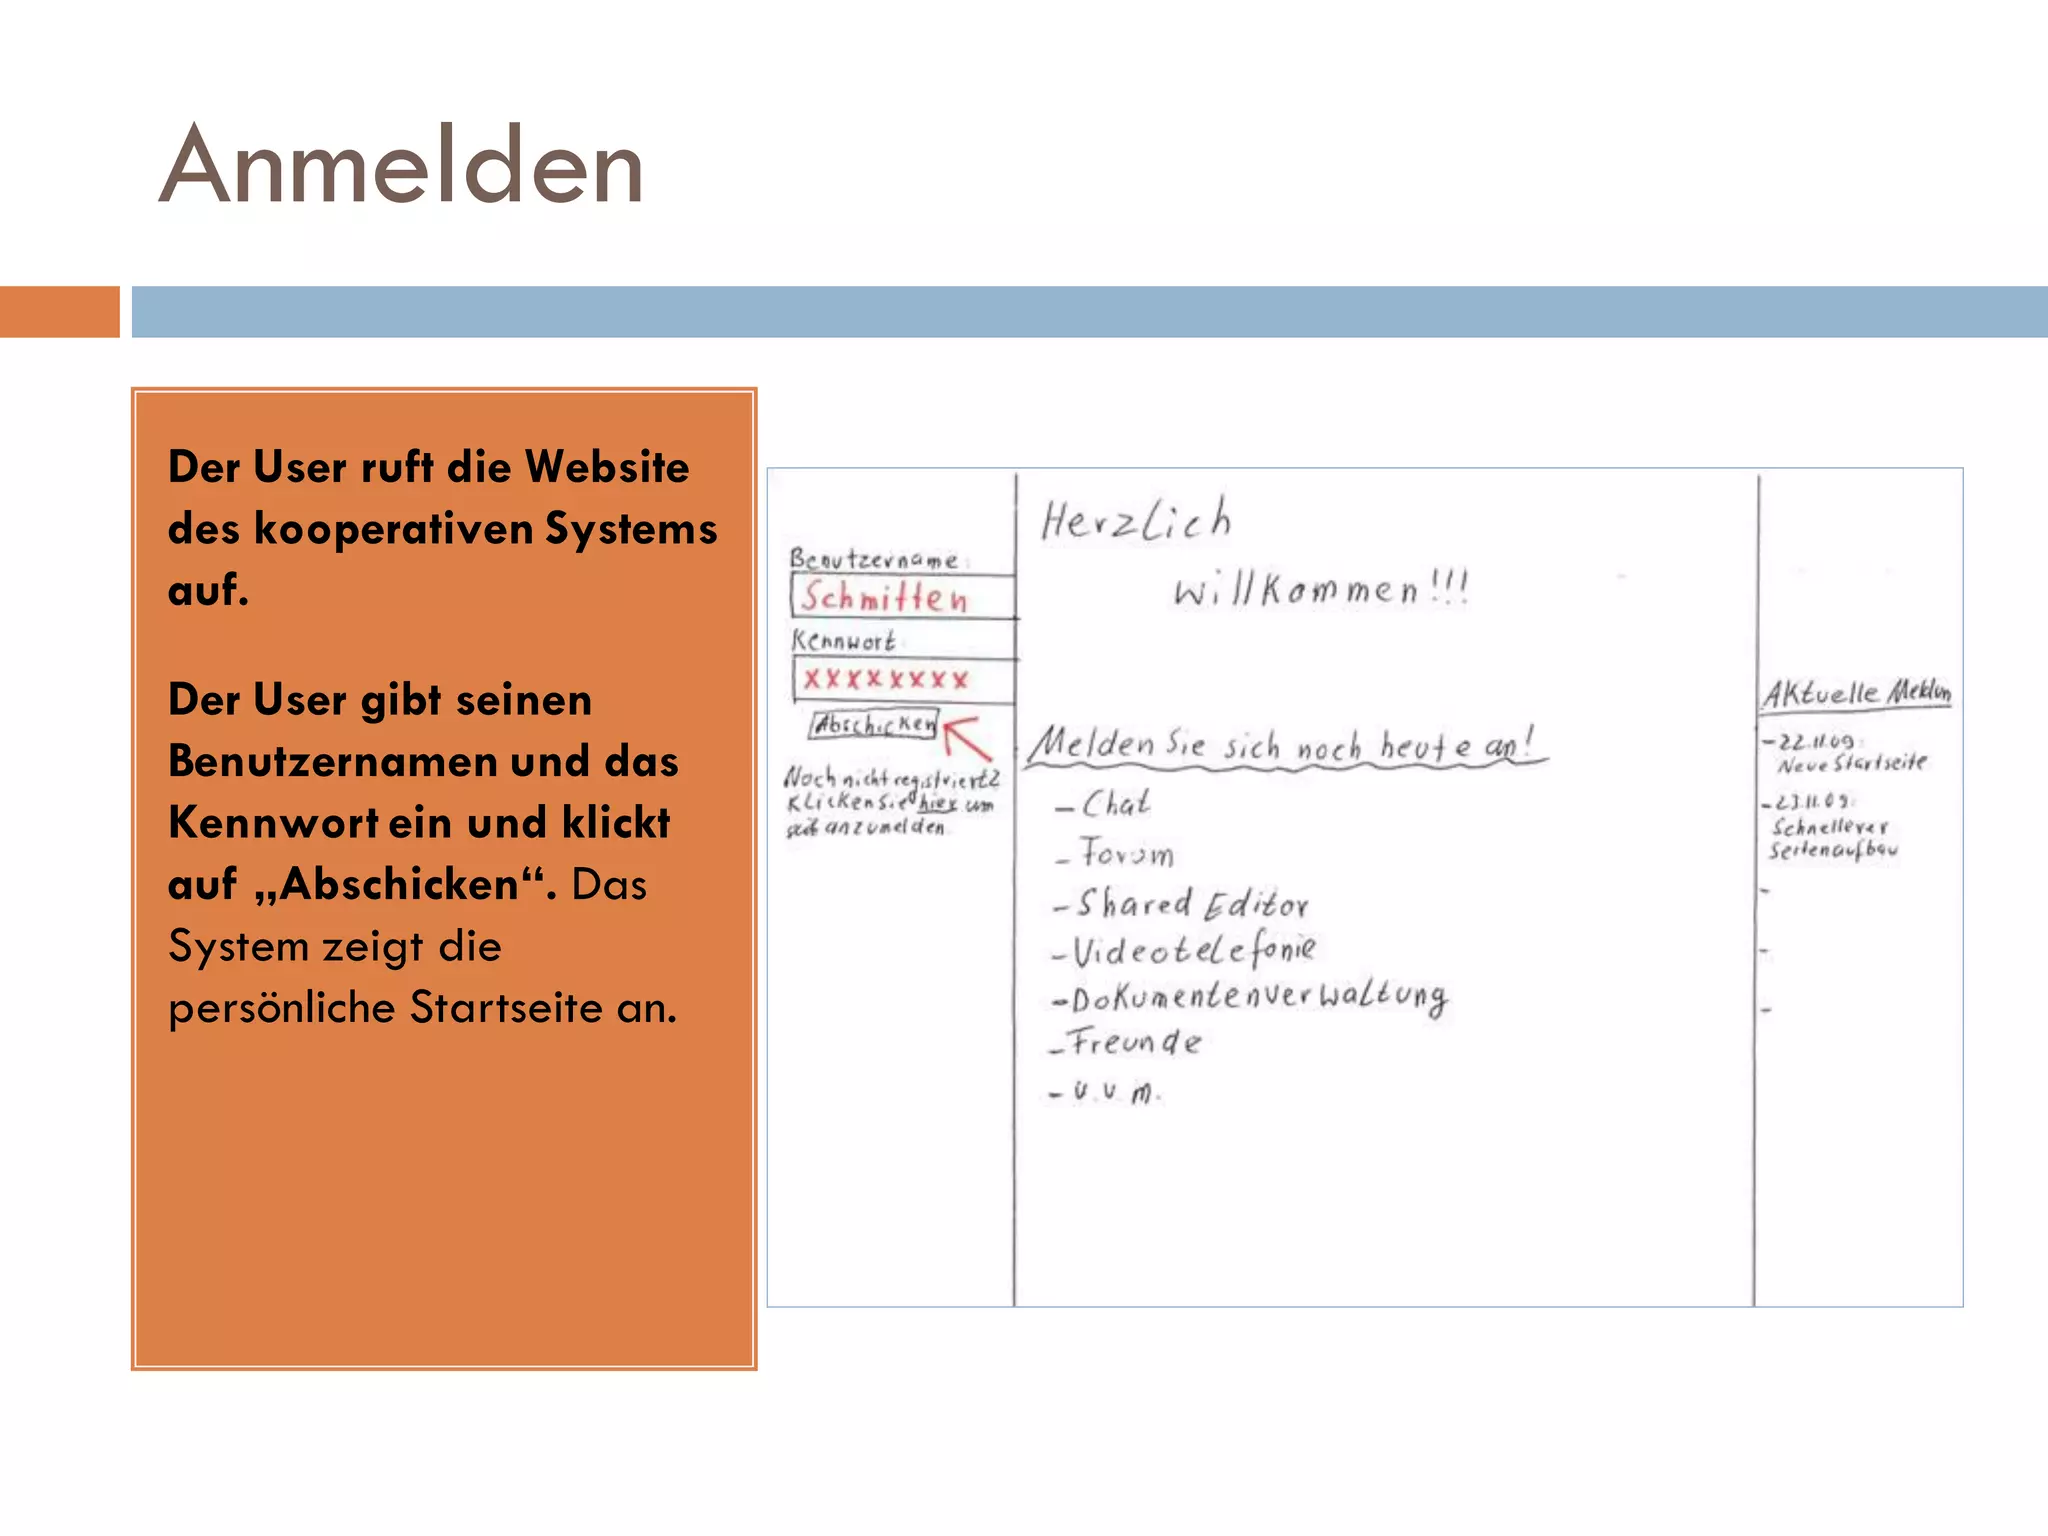 Anmelden
Der User ruft die Website
des kooperativen Systems
auf.
Der User gibt seinen
Benutzernamen und das
Kennwort ein und klickt
auf „Abschicken“. Das
System zeigt die
persönliche Startseite an.
Benutzername:
Schmitten
Kennwort
xxxxxxxx
Abschicken
Noch nicht registriert?
Klicken Sie hier um
anzumelden.
Herzlich
Willkommen!!!
Melden Sie sich noch heute an!
- Chat
- Forum
- Shared Editor
- Videotelefonie
- Dokumentenverwaltung
- Freunde
- u.v.m.
Aktuelle
- 22.11.09:
Neue Startseite
- 23.11.09:
Schnellerer
Seitenaufbau
-
-
-